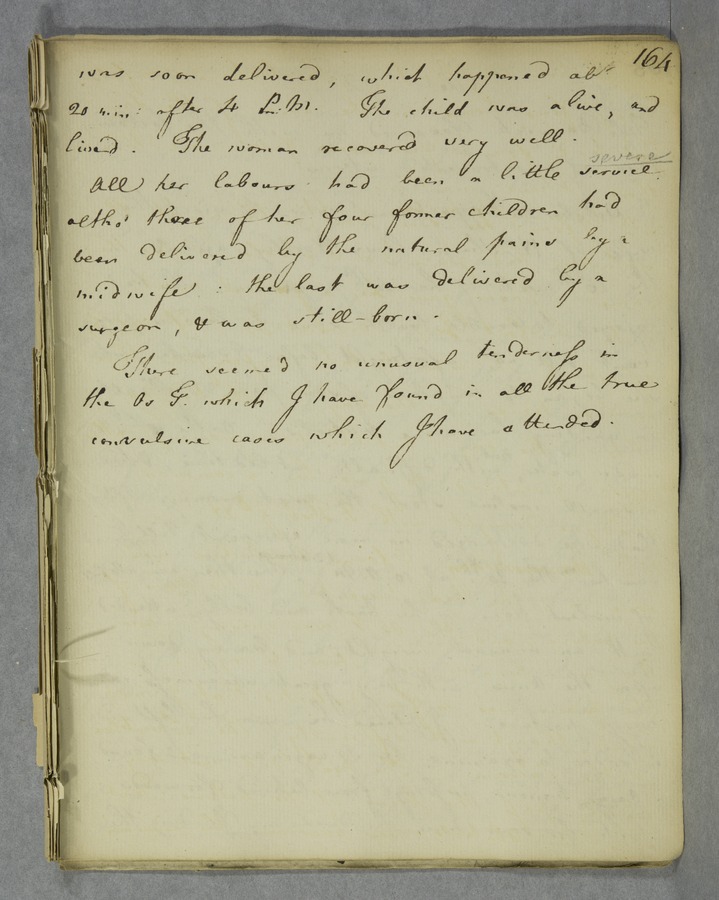 164
was soon delivered, which happened abt
20 min: after 4 P.M. The child was alive, and
lived. The woman recovered very well.
severe
All her labours had been a little service
altho' three of her four former children had
been delivered by the natural pains by a
midwife: the last was delivered by a
surgeon, & was still-born.
There seemed no unusual tenderness in
the Os T. which I have found in all the true
convulsive cases which I have attended.